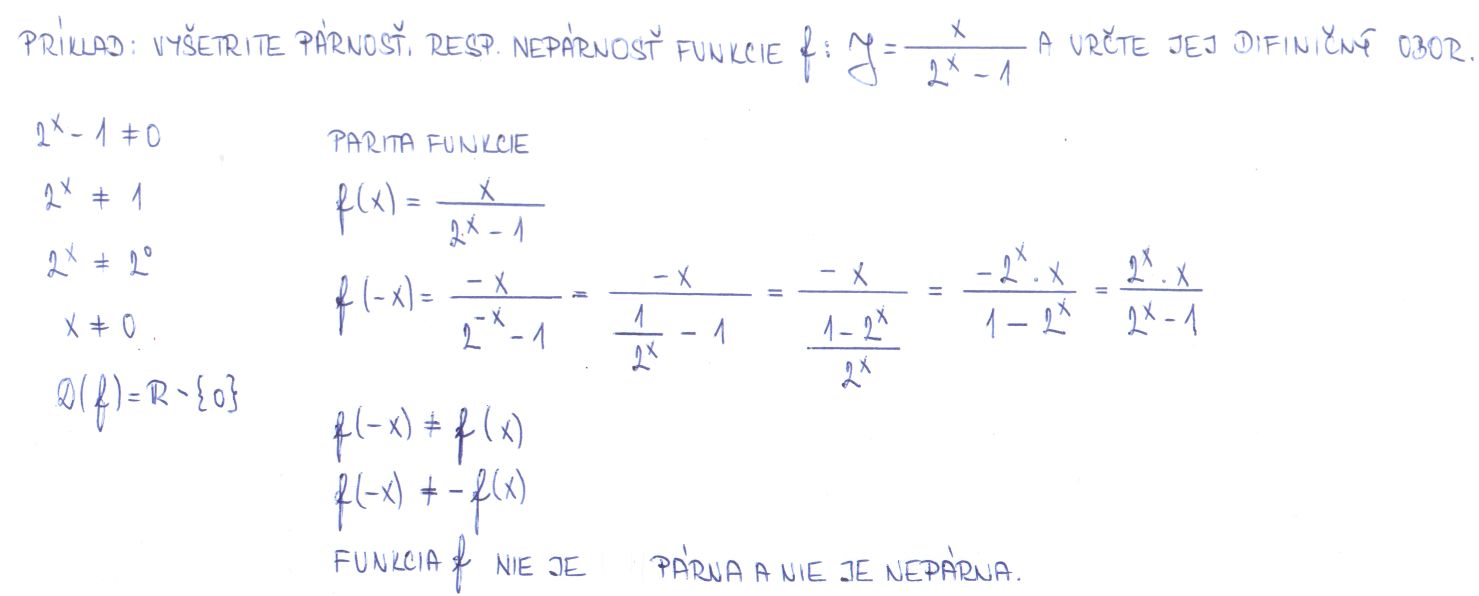 PRÍKLAD: VYŠETRITE PÁRNOSŤ, RESP. NEPÁRNOSŤ FUNKCIE f: y = x / (2^x - 1) A URČTE JEJ DIFINIČNÝ OBOR.
2^x - 1 ≠ 0
2^x ≠ 1
2^x ≠ 2^0
x ≠ 0
D(f) = R - {0}
PARITA FUNKCIE
f(x) = x / (2^x - 1)
f(-x) = -x / (2^-x - 1) = -x / (1/2^x - 1) = -x / ((1 - 2^x)/2^x) = (-2^x · x) / (1 - 2^x) = (2^x · x) / (2^x - 1)
f(-x) ≠ f(x)
f(-x) ≠ -f(x)
FUNKCIA f NIE JE PÁRNA A NIE JE NEPÁRNA.